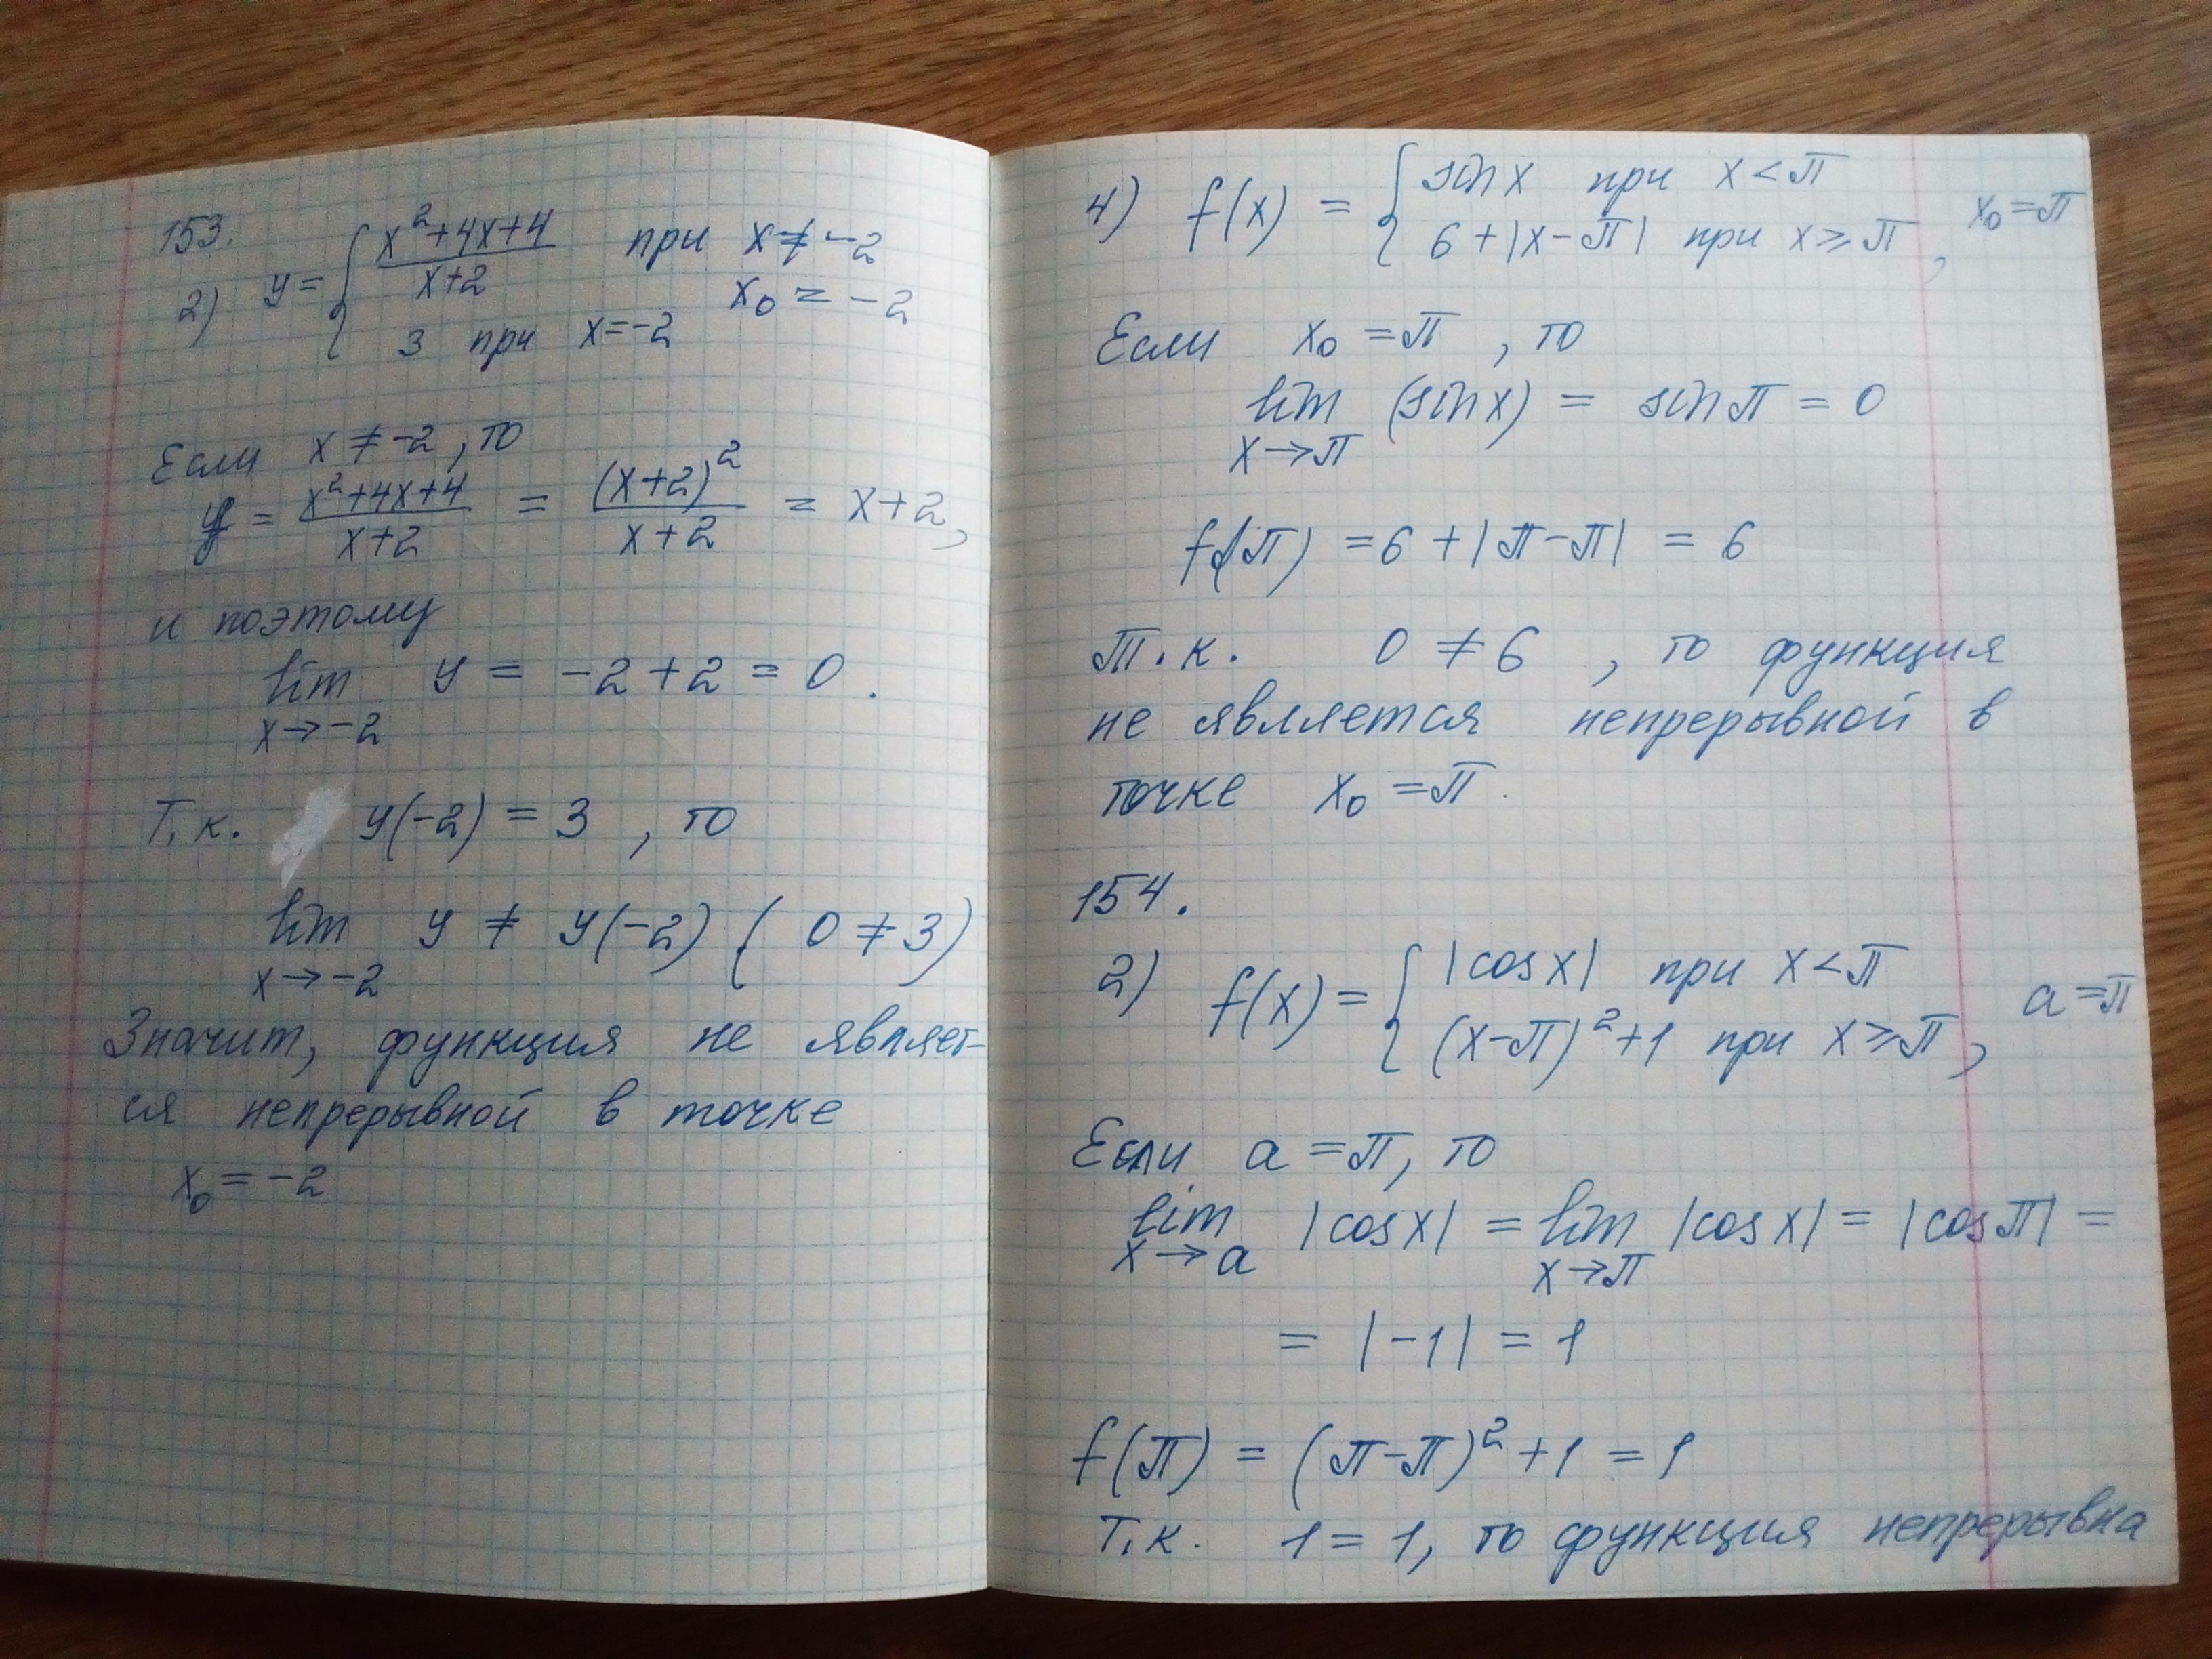 153.
2) y = { x²+4x+4 / x+2 при x ≠ -2
3 при x = -2 x₀ = -2
Если x ≠ -2, то
y = x²+4x+4 / x+2 = (x+2)² / x+2 = x+2,
и поэтому
lim y = -2+2 = 0.
x→-2
Т.к. y(-2) = 3, то
lim y ≠ y(-2) (0 ≠ 3)
x→-2
Значит, функция не являет-
ся непрерывной в точке
x₀ = -2
4) f(x) = { sin x при x < π
6+|x-π| при x ⩾ π, x₀ = π
Если x₀ = π, то
lim (sin x) = sin π = 0
x→π
f(π) = 6+|π-π| = 6
Т.к. 0 ≠ 6, то функция
не является непрерывной в
точке x₀ = π.
154.
2) f(x) = { |cos x| при x < π
(x-π)²+1 при x ⩾ π, a = π
Если a = π, то
lim |cos x| = lim |cos x| = |cos π| =
x→a x→π
= |-1| = 1
f(π) = (π-π)²+1 = 1
Т.к. 1 = 1, то функция непрерывна